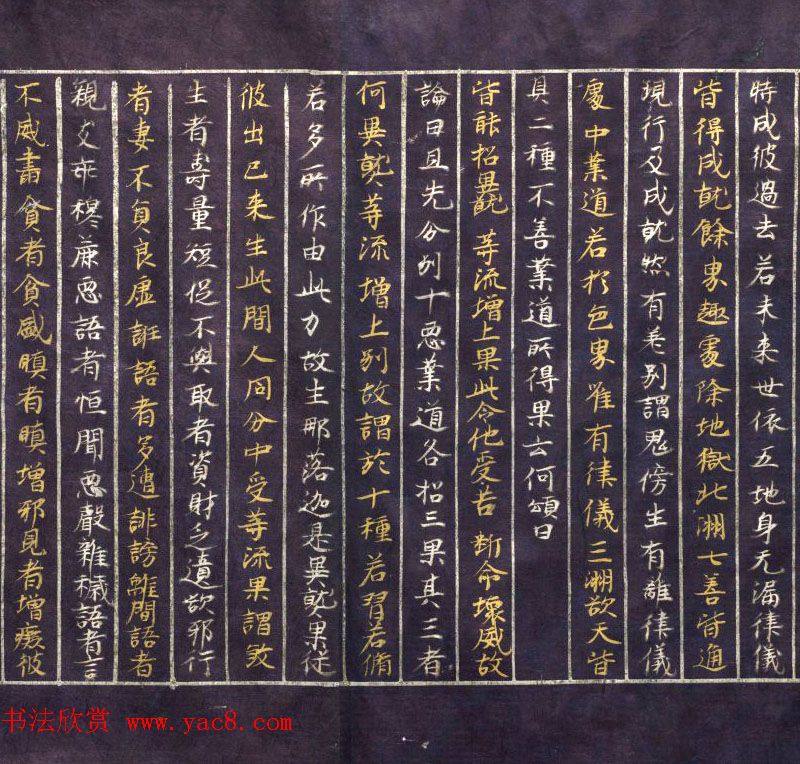 特成彼過去若未来世依五地身无漏律儀
皆得成就餘界趣處除地獄北洲七善皆通
現行及成就然有差别謂鬼傍生有離律儀
處中業道若於色界唯有律儀三洲欲天皆
具二種不善業道所得果云何頌曰
皆能招異熟 等流增上果此令他受苦 断命壞威故
論曰且先分别十惡業道各招三果其三者
何異熟等流增上别故謂於十種若習若脩
若多所作由此力故生那落迦是異熟果從
彼出已来生此間人同分中受等流果謂煞
生者壽量短促不與取者資財乏遺欲邪行
者妻不負良虚誑語者多遭誹謗離間語者
親友乖穆麁惡語者恒聞惡聲雜穢語者言
不威肅貪者貪盛瞋者瞋增邪見者增癡彼
书法欣赏 www.yac8.com